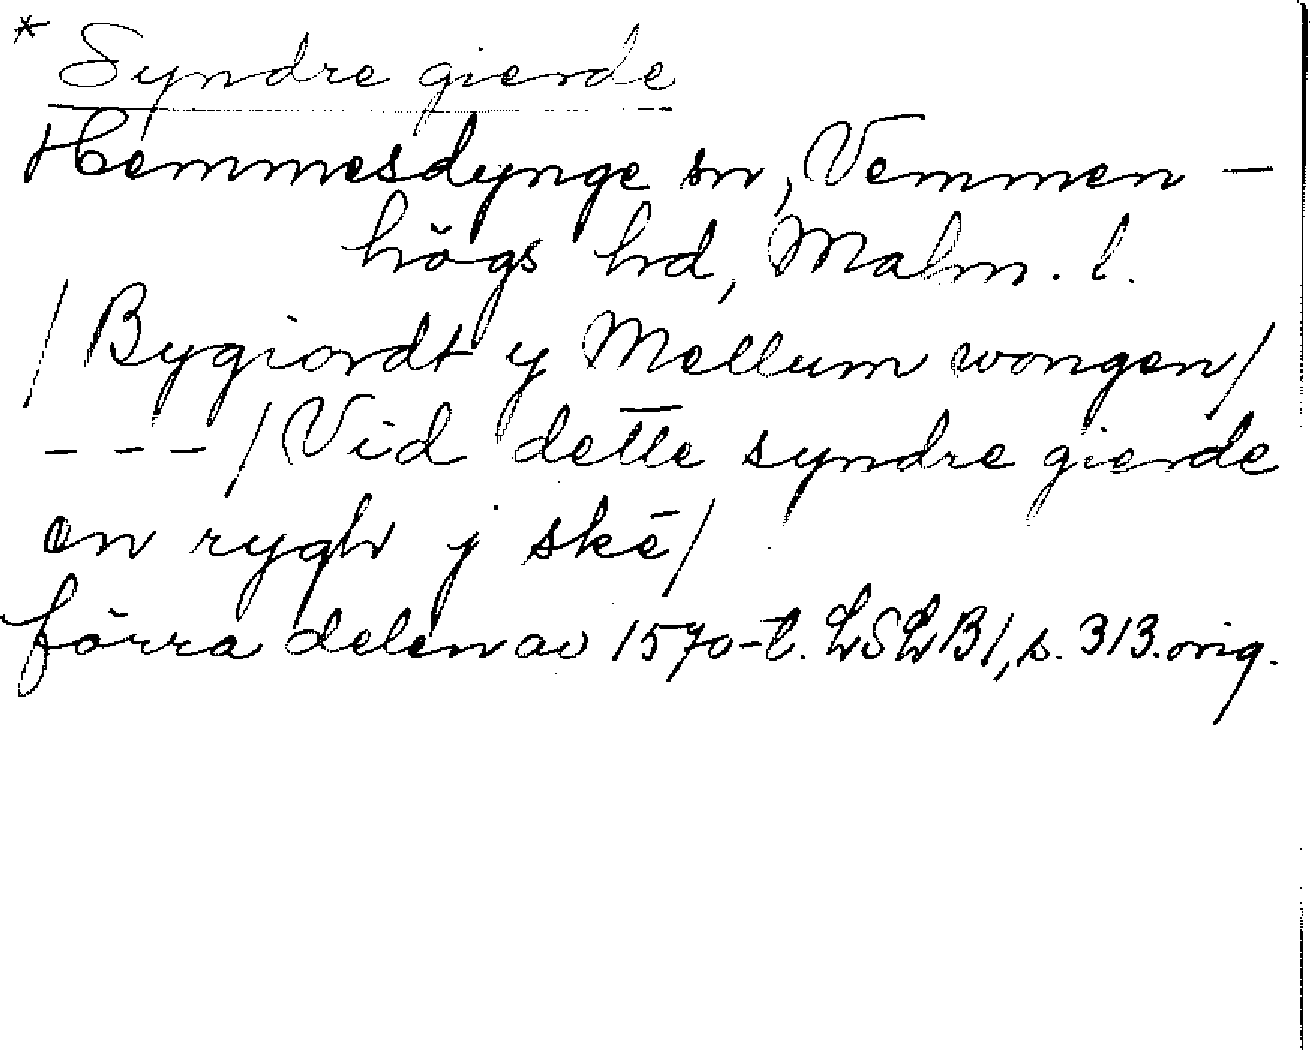 * Syndre gierde
Hemmesdynge sn, Vemmen-
högs hd, Malm. l.
/ Bygiordt y Mellum wongen/
--- / Vid dette syndre gierde
en rygh y ske/
förra delen av 1570-t. LSLB1, s. 313. orig.